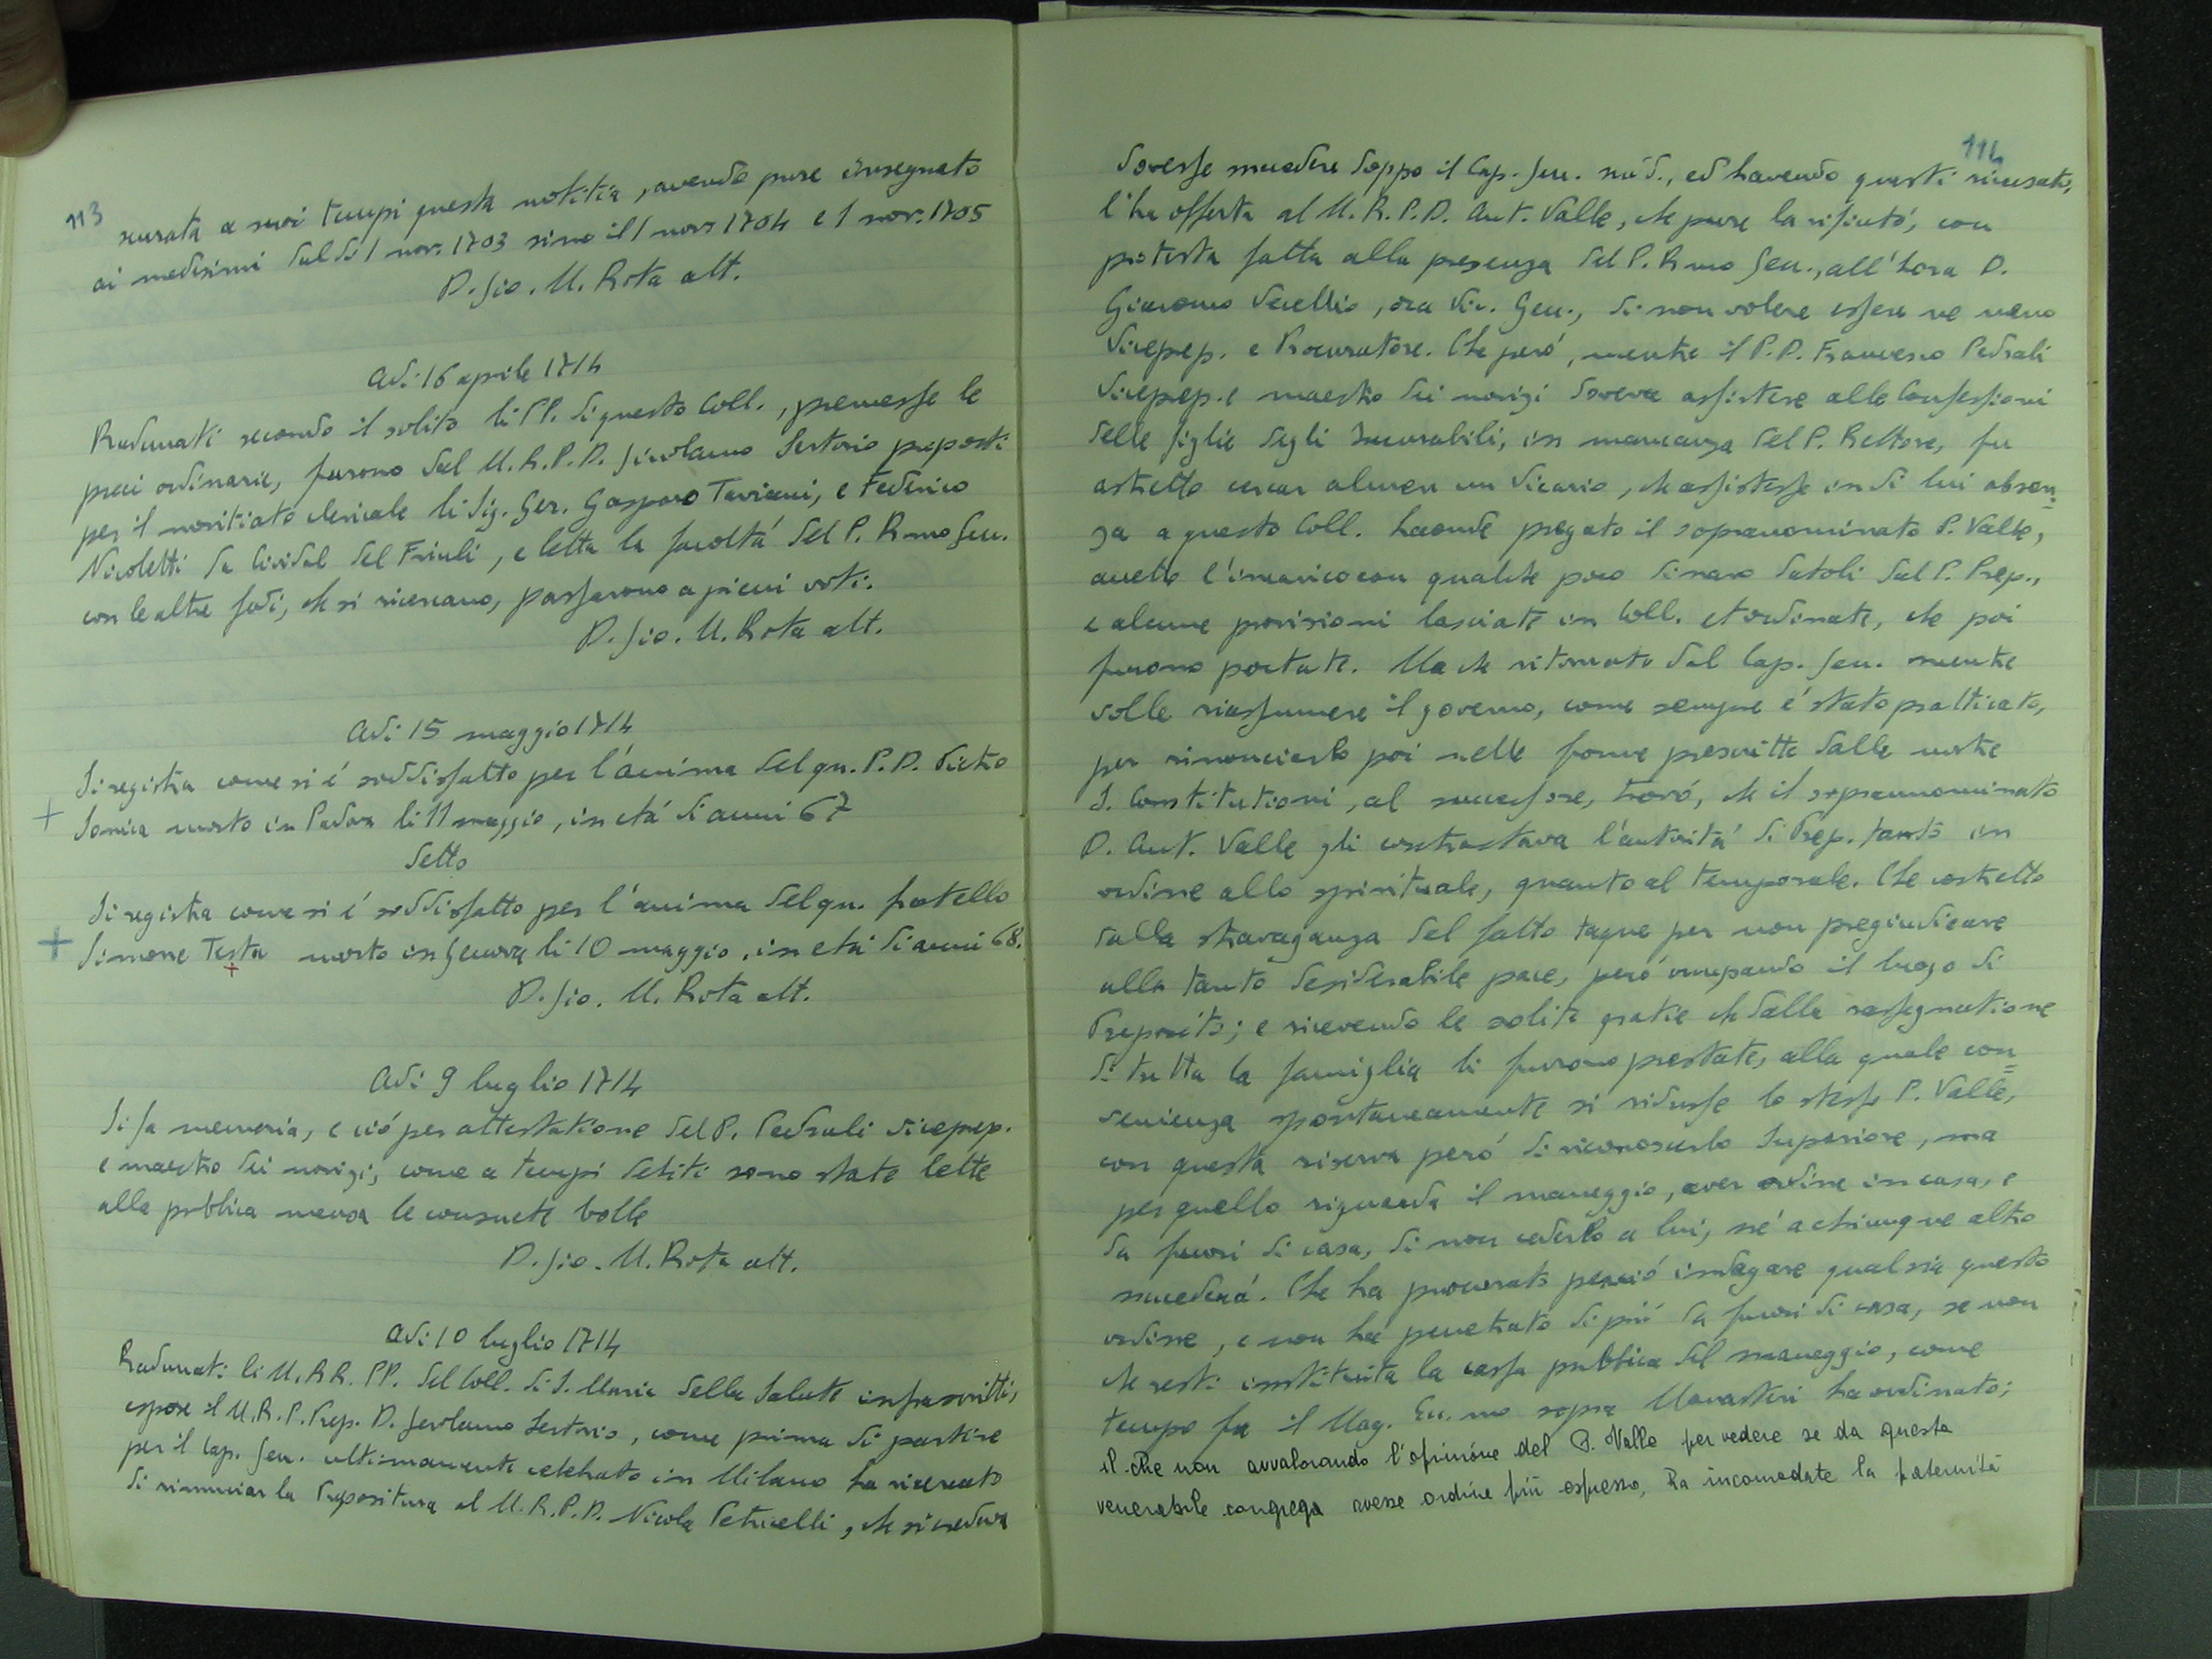 113
scurata a suoi tempi questa notitia, avendo pure insegnato
ai medesimi dal dì 1 nov. 1703 sino il 1 nov. 1704 e 1 nov. 1705
D. Gio. M. Rota att.
Adi 16 aprile 1714
Radunati secondo il solito li PP. di questo Coll., premesse le
preci ordinarie, furono dal M.R.P.D. Girolamo Sertorio proposti
per il novitiato clericale li Sig. Ger. Gasparo Taviani, e Federico
Nicoletti da Cividal del Friuli, e letta la facoltá del P. R.mo Gen.
con le altre fedi, che si ricercano, passarono a pieni voti.
D. Gio. M. Rota att.
Adi 15 maggio 1714
Si registra come si é soddisfatto per l'ánima del qu. P.D. Pietro
+ Somica morto in Padova li 11 maggio, in etá di anni 67
detto
Si registra come si é soddisfatto per l'anima del qu. fratello
+ Simone Testa morto in Genova li 10 maggio, in etá di anni 68.
+
D. Gio. M. Rota att.
Adi 9 luglio 1714
Si fa memoria, e ció per attestatione del P. Pedrali viceprep.
e maestro dei novizi, come a tempi debiti sono state lette
alla publica mensa le consuete bolle
D. Gio. M. Rota att.
Adi 10 luglio 1714
Radunati li M.RR. PP. del Coll. di S. Maria della Salute infrascritti,
espose il M.R.P. Prep. D. Gerolamo Sertorio, come prima di partire
per il Cap. Gen. ultimamente celebrato in Milano ha ricercato
di rinunciar la Prepositura al M.R.P.D. Nicola Petricelli, che si credeva
114
dovesse succedere doppo il Cap. Gen. sud., ed havendo questi ricusato,
l'ha offerta al M.R.P.D. Ant. Valle, che pure la rifiutó, con
protesta fatta alla presenza del P. R.mo Gen., all'hora D.
Giacomo Vecellio, ora Vic. Gen., di non volere essere ne meno
Viceprep. e Procuratore. Che peró, mentre il P.D. Francesco Pedrali
Viceprep. e maestro dei novizi doveva assistere alle Confessioni
delle figlie degli Incurabili, in mancanza del P. Rettore, fu
astretto cercar almen un Vicario, che assistesse in di lui absen=
za a questo Coll. Laonde pregato il sopranominato P. Valle,
accettò l'incarico con qualche poco dinaro datoli dal P. Prep.,
e alcune provisioni lasciate in Coll. et ordinate, che poi
furono portate. Ma che ritornato dal Cap. Gen. mentre
volle riassumere il governo, come sempre é stato pratticato,
per rinonciarlo poi nelle forme prescritte dalle nostre
S. Constitutioni, al successore, trovó, che il soprannominato
D. Ant. Valle gli contrastava l'autoritá di Prep. tanto in
ordine allo spirituale, quanto al temporale. Che costretto
dalla stravaganza del fatto taque per non pregiudicare
alla tanto desiderabile pace, peró occupando il luogo di
Preposito; e ricevendo le solite gratie che dalla rassegnatione
di tutta la famiglia li furono prestate, alla quale con=
venienza spontaneamente si ridusse lo stesso P. Valle,
con questa riserva peró di riconoscerlo Superiore, ma
per quello riguarda il maneggio, aver ordine in casa, e
da fuori di casa, di non cederlo a lui, né a chiunque altro
succederá. Che ha procurato perció indagare qual sia questo
ordine, e non ha penetrato di piú da fuori di casa, se non
che resti instituita la cassa publica del maneggio, come
tempo fa il Mag. Ecc.mo sopra Monasteri ha ordinato;
il che non avvalorando l'opinione del P. Valle per vedere se da questa
venerabile congrega avesse ordine più espresso, ha incomodate la paternitá